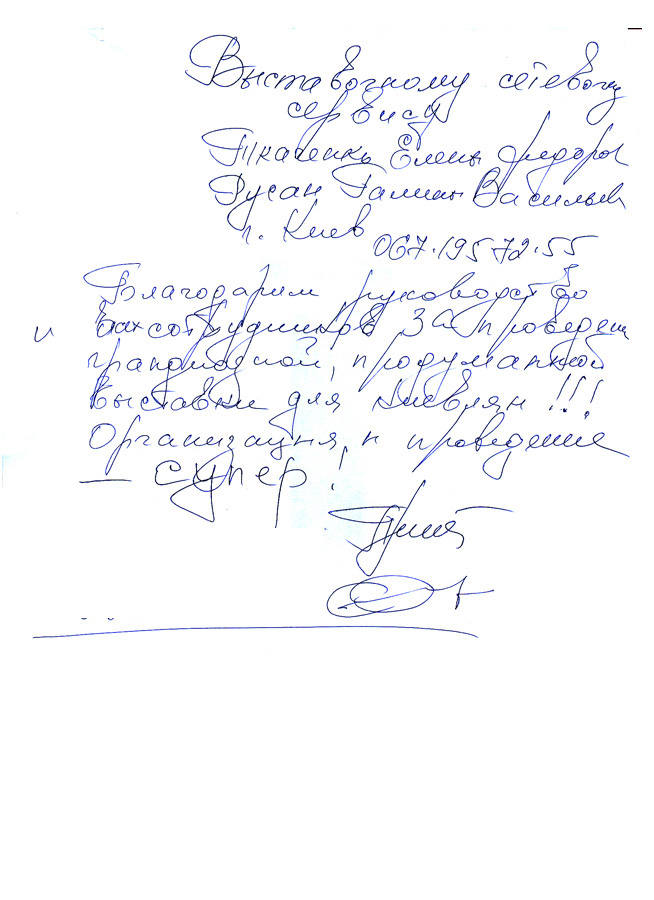 Выставочному сетевому
сервису
Ткаченко Елены Федоров
Русан Галины Васильев
г. Киев 067.195 72.55
Благодарим руководство
и Вах сотрудников за проведен
грандиозной, продуманной
выставки для киевлян!!!
Организация, и проведение
— супер!